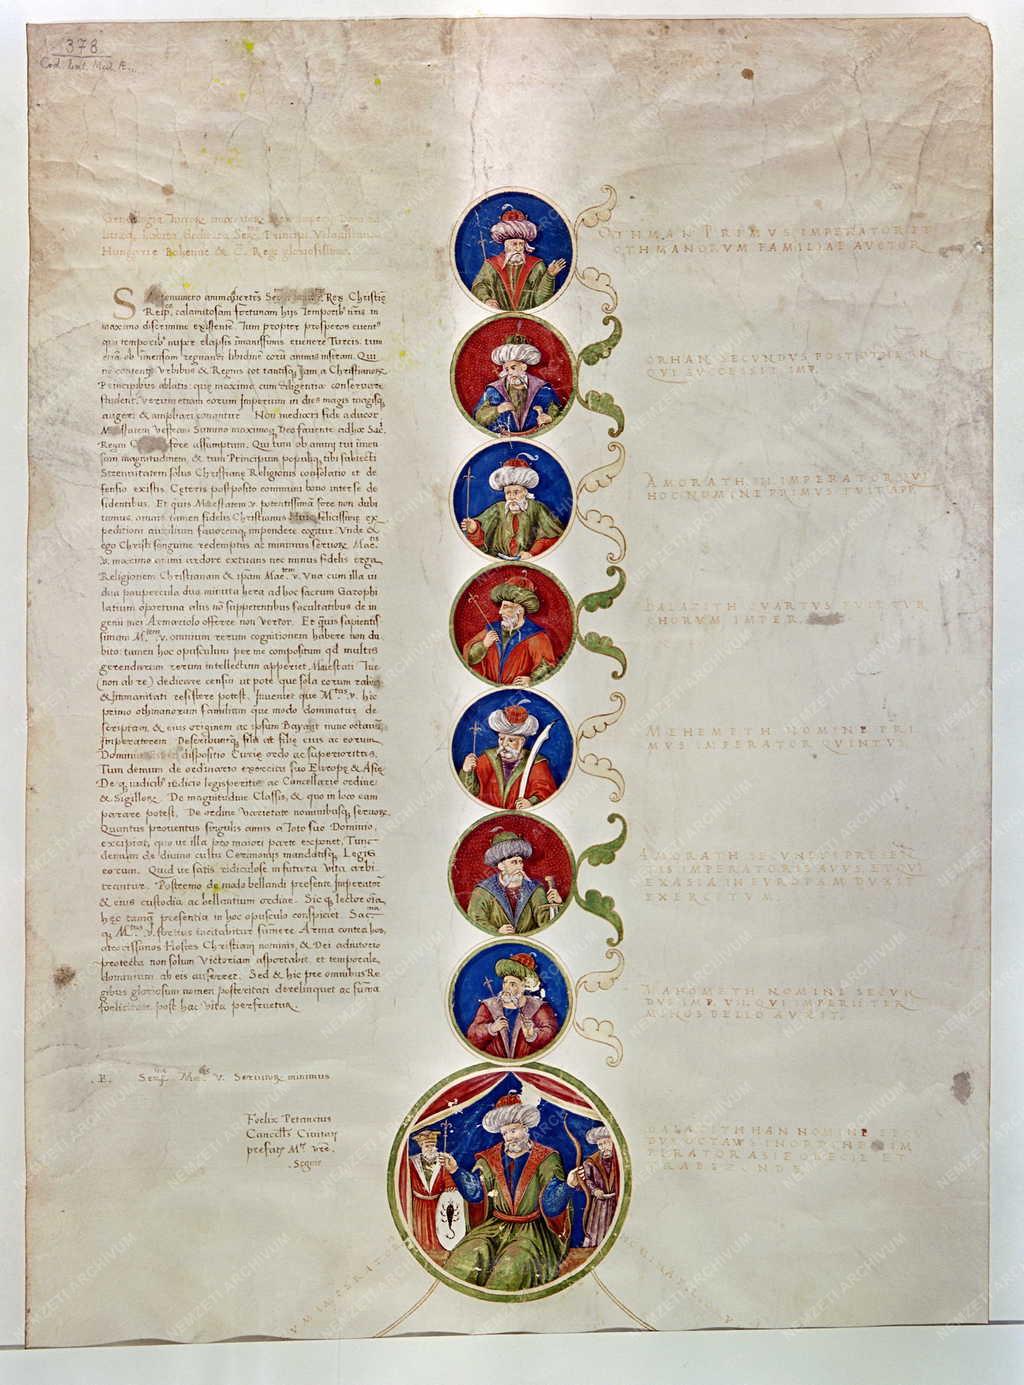 378
Cod. Lat. Med. Æ.
Genealogia Turcorum
Hungarie Bohemie & C. Regi gloriosissimo.
animadvertens Rex Christiane
Reip. calamitosam fortunam hijs Temporib nris in
maximo discrimine existente. Tum propter prosperos euent
que temporib nuper elapsis immanissimis euenere Turcis. tum
etiã ob immensam regnandi libidinē eorū animis insitam. Qui
nō contentj Vrbibus & Regnis tot tantisq Jam a Christianor
Principibus ablatis: que maxima cum diligentia conseruare
student. verum etiam eorum Imperium in dies magis magisq
augeri & ampliari conantur Non mediocri fide aducor
Maiestatem vestram Summo maximoq Deo fauente ad hoc Sac.
Regnū fore assumptam. Qui tum ob animi tui imen
sam magnitudinem, & tum Principum populiq tibi subiecti
Strenuitatem solus Christiane Religionis consolatio et de
fensio existis. Ceteris postposito communi bono inter se de
sidentibus. Et quis Maiestatem v. potentissimã fore non dubi
tamus. omnis tamen fidelis Christianus felicissime ex
peditioni auxilium fauoremq impendere cogitur. Vnde &
ego Christi sanguine redemptus ac minimus seruor Mae.tis
v. maximo animi ardore extuans nec minus fidelis erga
Religionem Christianam & ipam Mae.tem v. Vna cum illa vi
dua paupercula duo minuta hera ad hoc sacrum Gazophi
latium oportuna alijs nō suppetentibus facultatibus de in
genii mei Armariolo offerre non vertor. Et quis sapientis
simam M.tem v. omnium rerum cognitionem habere non du
bito: tamen hoc opusculum per me compositum qd multis
gerendarum rerum intellectum apperiet, Maiestati Tue
(non ab re) dedicare censui ut pote que sola eorum rabiei
& Immanitati resistere potest. Inueniet que M.tas v. hic
primo othmanorum familiam que modo dominatur de
scriptam, & eius originem ac ipsum Bayazit nunc octauū
Imperatorem
Dominij dispositio Curie ordo ac superioritas.
Tum demum de ordinario exercitu suo Europe & Asie
De q iudicib iudicio legisperitis ac Cancellarie ordine
& Sigillor. De magnitudine Classis, & quo in loco eam
parare potest. De ordine varietate nominibusq seruor
Quantus prouentus singulis annis a Toto suo Dominio
excipiat, quo ue illa pro maiori parte exponet, Tunc
demum de diuino cultu Ceremonijs mandatisq Legis
eorum. Quid ue satis ridiculose in futura vita arbi
trantur. Postremo de modo bellandi presentis Imperator
& eius custodia ac bellantium ordine. Sic q lector oia
hec tamq presentia in hoc opusculo conspiciet. Sac.ma
q M.tas v. fortius incitabitur sumere Arma contra hos
atrocissimos Hostes Christiani nominis, & Dei adiutorio
protecta non solum Victoriam asportabit, et temporale
domanium ab eis auferret. Sed & hic pre omnibus Re
gibus gloriosum nomen posteritati derelinquet ac suma
foelicitate post hac vita perfruetur.
.E. Ser. Ma.tis V. Seruitor minimus
Foelix Petancius
Cancells Ciuitat
prefat M.ti vre.
Segnie
OTHMAN PRIMVS IMPERATOR ET
OTHMANORVM FAMILIAE AVCTOR
ORHAN SECVNDVS POST OTHMAN
QVI SVCCESSIT IMP.
AMORATH III IMPERATOR QVI
HOC NOMINE PRIMVS FVIT APP.
BAIAZITH QVARTVS FVIT TVR
CHORVM IMPER.
MEHEMETH NOMINE PRI
MVS IMPERATOR QVINTVS
AMORATH SECVNDVS PRESEN
TIS IMPERATORIS AVVS. ET QVI
EX ASIA IN EVROPAM DVXIT
EXERCITVM.
MAHOMETH NOMINE SECVN
DVS IMP. VII. QVI IMPERII TER
MINOS BELLO AVXIT.
BAIAZITH HAN NOMINE SECV
DVS OCTAVVS IM
PERATOR ASIE GRECIE ET
TRABEZVNDE